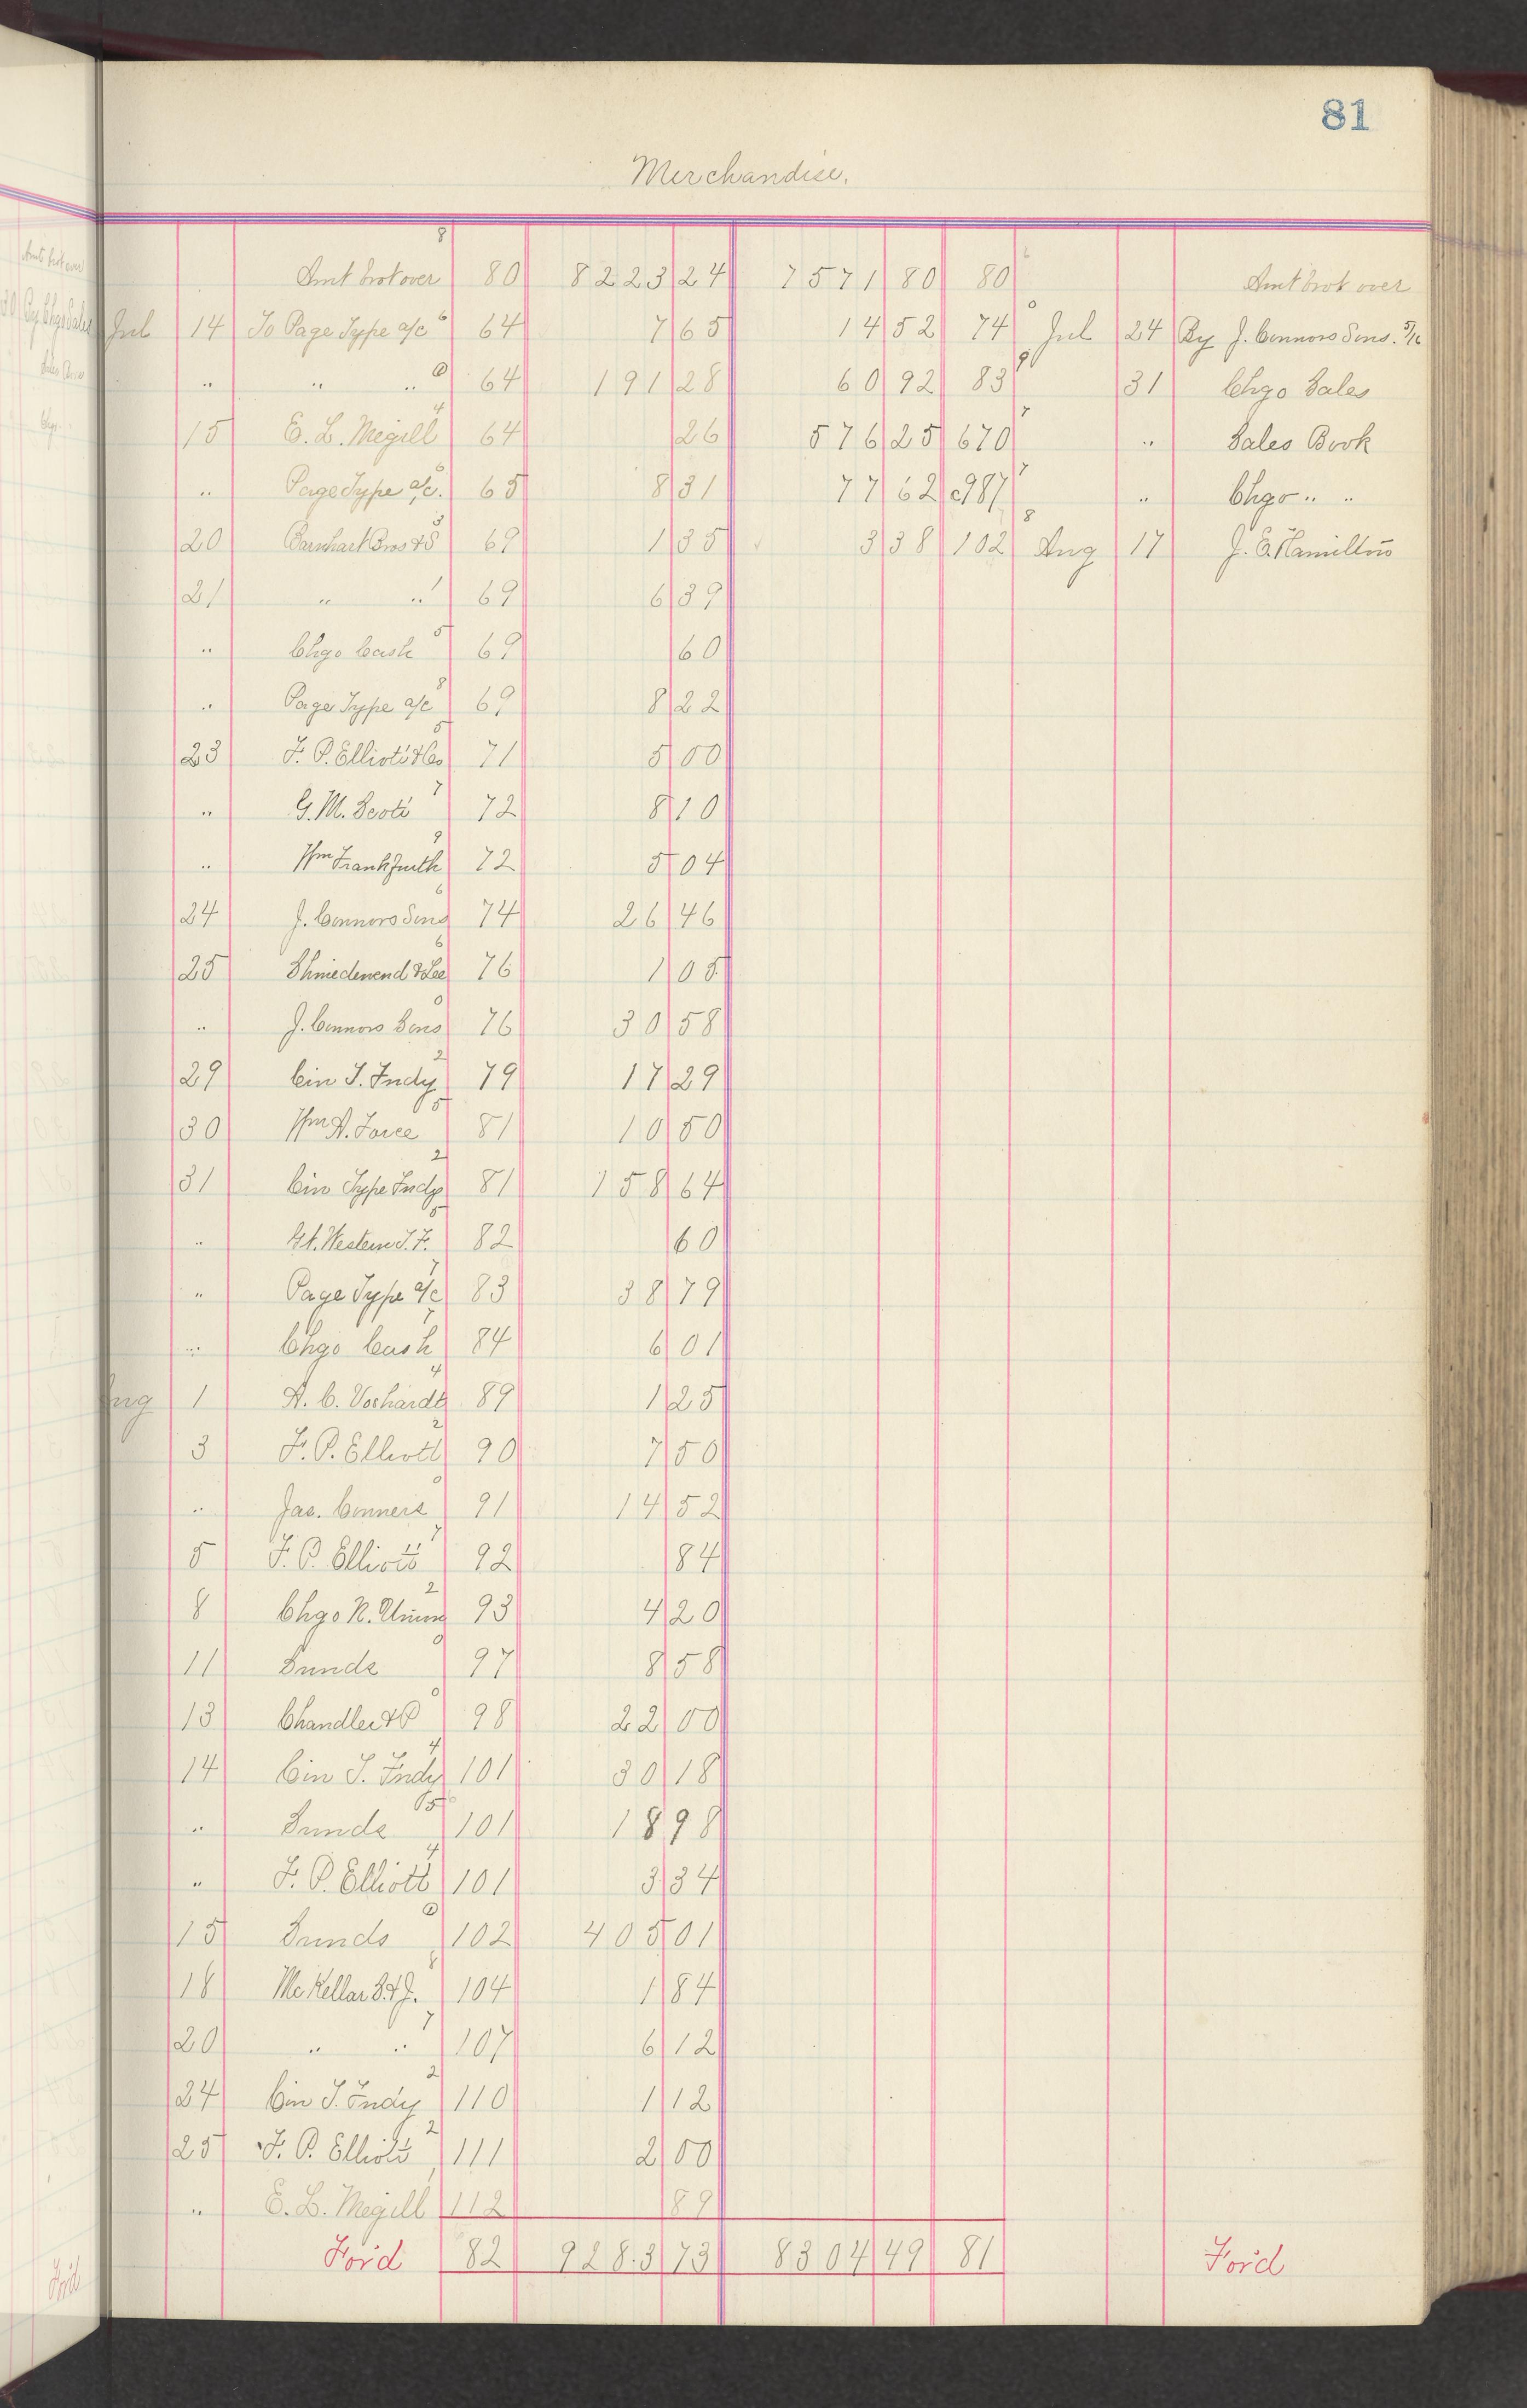 81
Merchandise.
Amt brot over 80 8223 24 7571 80 80 Amt brot over
Jul 14 To Page Type a/c 64 7 65 14 52 74 Jul 24 By J. Connors Sons.
" " " 64 191 28 60 92 83 31 Chgo Sales
15 E. L. Megill 64 26 576 25 670 " Sales Book
" Page Type a/c. 65 8 31 77 62 987 " Chgo " "
20 Barnhart Bros & S 69 1 35 3 38 102 Aug 17 J. E. Hamilton
21 " " 69 6 39
" Chgo Cash 69 60
" Page Type a/c 69 8 22
23 F. P. Elliott & Co 71 5 00
" G. M. Scott 72 8 10
" Wm Frankfurth 72 5 04
24 J. Connors Sons 74 26 46
25 Shniedenend & Lee 76 1 05
" J. Connors Sons 76 30 58
29 Cin T. Fndy 79 17 29
30 Wm A. Force 81 10 50
31 Cin Type Fndy 81 158 64
" Gt. Western T. F. 82 60
" Page Type a/c 83 38 79
" Chgo Cash 84 6 01
Aug 1 A. C. Voshardt 89 1 25
3 F. P. Elliott 90 7 50
" Jas. Conners 91 14 52
5 F. P. Elliott 92 84
8 Chgo N. Union 93 4 20
11 Sunds 97 8 58
13 Chandler & P 98 22 00
14 Cin T. Fndy 101 30 18
" Sunds 101 18 98
" F. P. Elliott 101 3 34
15 Sunds 102 405 01
18 McKellar S & J. 104 1 84
20 " " 107 6 12
24 Cin T. Fndy 110 1 12
25 F. P. Elliott 111 2 00
" E. L. Megill 112 89
For'd 82 928.3 73 8304 49 81 For'd